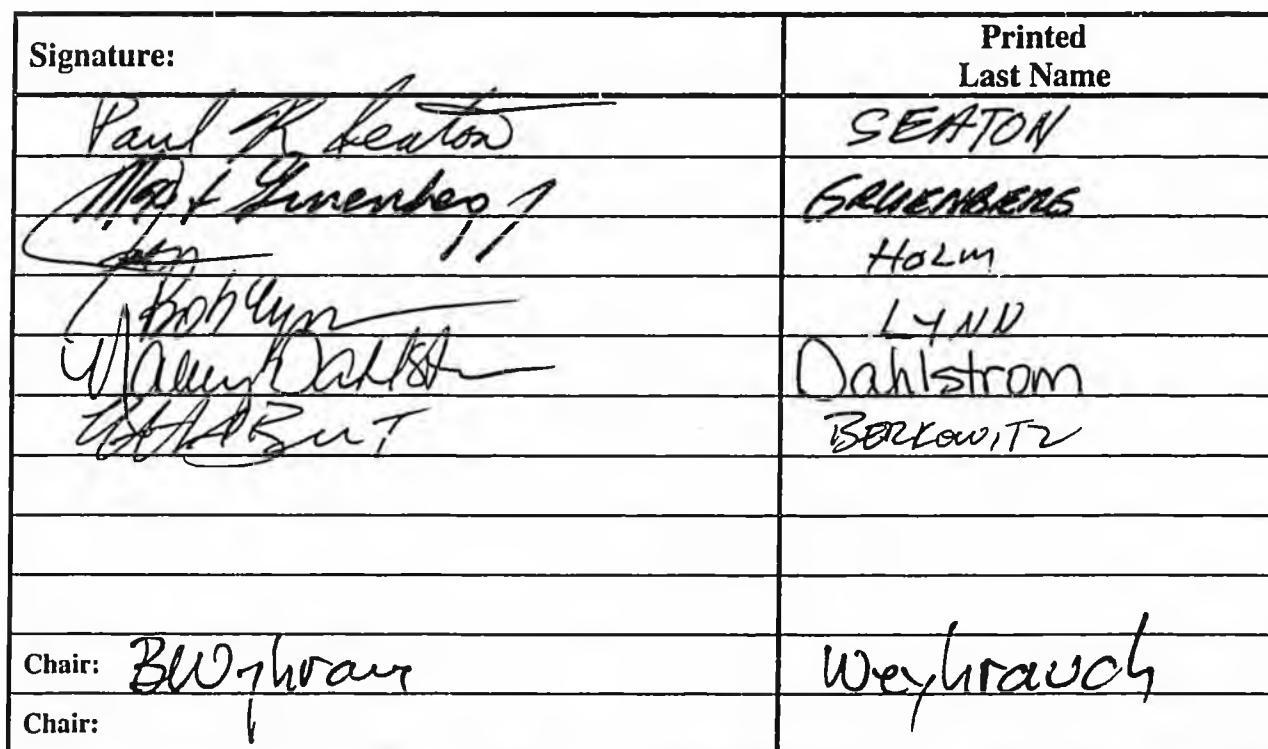 Signature: Printed Last Name
Paul K Seaton SEATON
Max F Gruenberg GRUENBERG
HOLM
Bob Lynn LYNN
Nancy Dahlst Dahlstrom
BERKOWITZ
Chair: BWeyhrauch Weyhrauch
Chair: